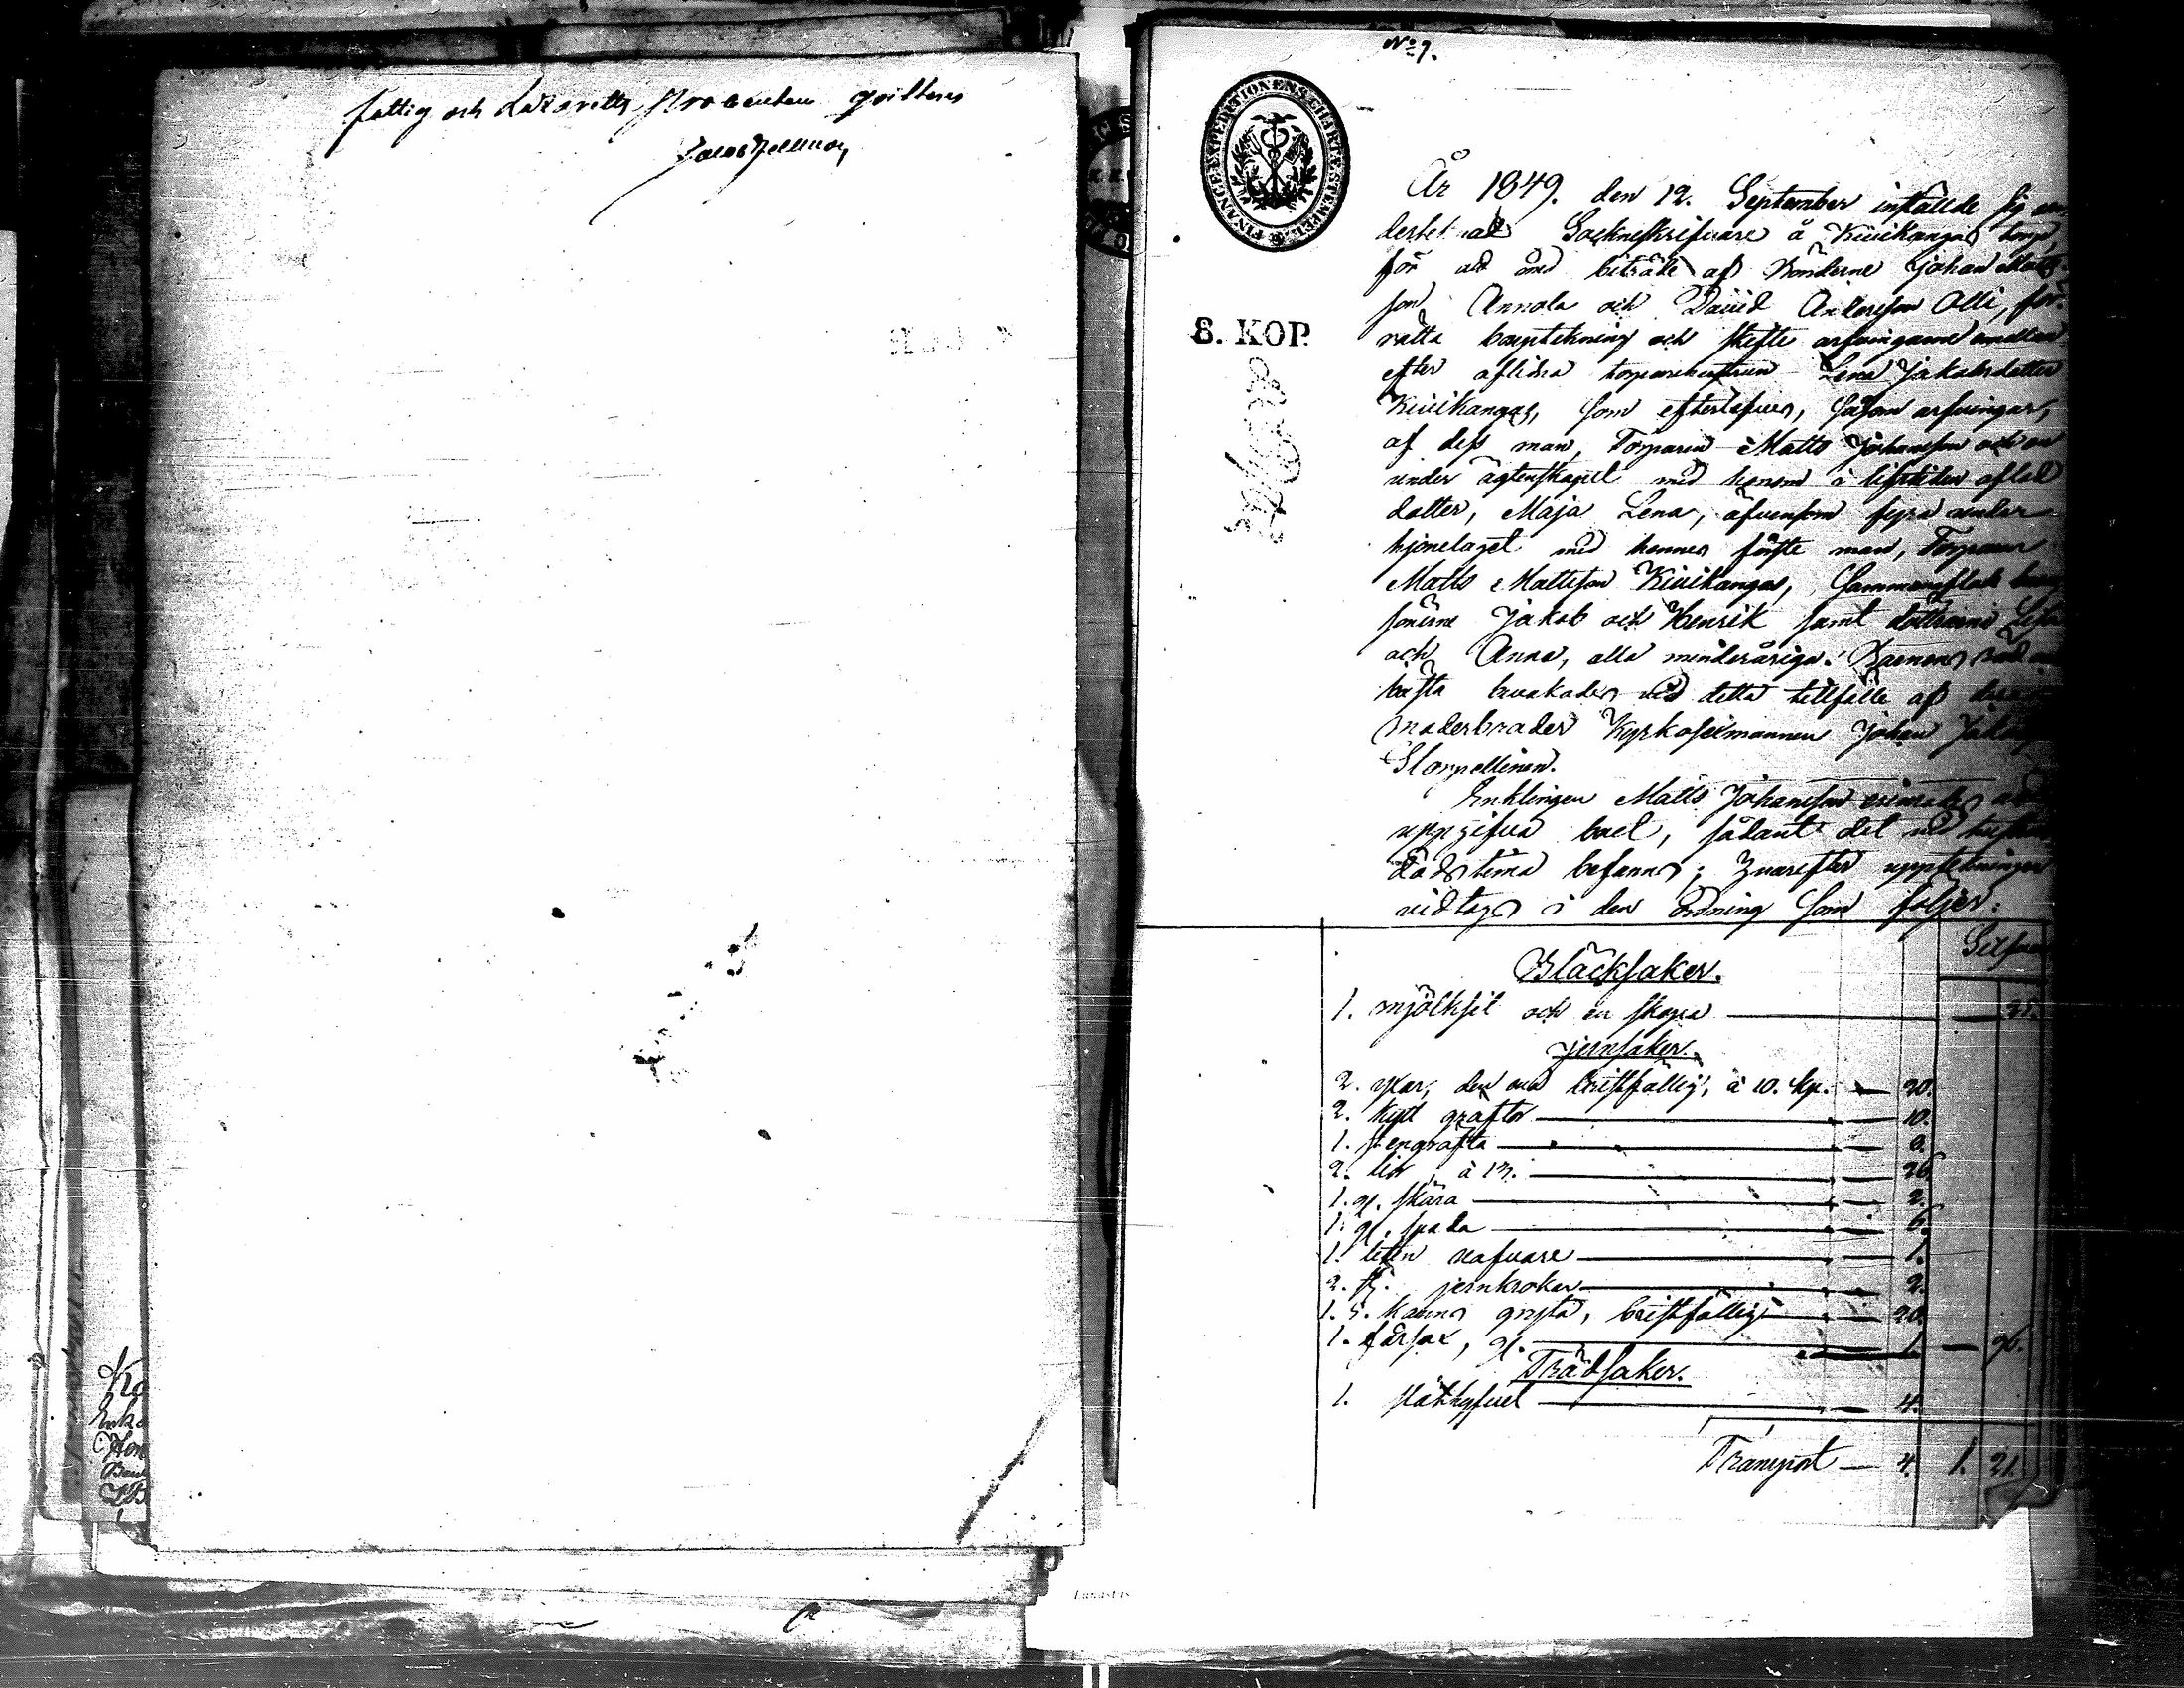 fattig och Lazaretts procenten qvitteras
Jacob Hellman
Nº 7.
FINANCE EXPEDITIONENS CHARTÆ STEMPEL
8. KOP.
År 1849. den 12. September infällde sig un
dertecknad Sockneskrifvare å Kiiikangas torp,
för att med biträde af Bönderne Johan Matts
son Annola och David Andersson Olli, för
rätta bouptekning och skifte arfvingarne emellan
efter aflidna torparehustrun Lena Jakobsdotter
Kiiikangas, som efterlefves, såsom arfvingar,
af dess man, Torparen Matts Johansson och en
under ägtenskapet med honom i lifstiden aflad
dotter, Maja Lena, äfvensom fyra under
hjonelaget med hennes förste man, Torparen
Matts Mattsson Kiiikangas, sammanaflade barn
sönerne Jakob och Henrik samt döttrarne Lisa
och Anna, alla minderåriga. Barnens
bästa bevakades vid detta tillfälle af
moderbroder Kyrkosexmannen Johan Jakobsson
Storpellinen.
Enklingen Matts Johansson
uppgifva boet, sådant det vid hustruns
dödstima befanns; hvarefter upptekningen
vidtogs i den ordning som följer:
Silfver
Bläcksaker.
1. mjölksil och en skopa — 25.
Jernsaker.
2. yxor, den ena bristfällig, à 10. kp. — 20.
2. kytt grafter — 10.
1. stengräfta — 8.
2. liar, à 13. — 26.
1. gl. skära — 2.
1. gl. spada — 6.
1. liten nafvare — 1.
2. st. jernkrokar — 2.
1. 5. kanns gryta, bristfällig — 20.
1. fårsax, gl. — 1. — 96.
Trädsaker.
1. — 4.
Transport — 4. 1. 21.
Lunastus